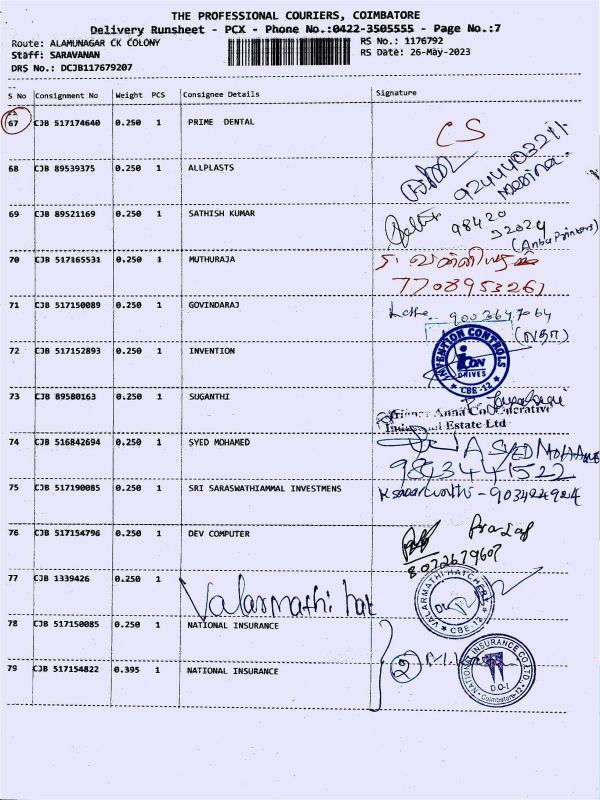 THE PROFESSIONAL COURIERS, COIMBATORE
Delivery Runsheet - PCX - Phone No.:0422-3505555 - Page No.:7
Route: ALAMUNAGAR CK COLONY
RS No.: 1176792
Staff: SARAVANAN
RS Date: 26-May-2023
DRS No.: DCJB117679207
S No Consignment No Weight PCS Consignee Details Signature
67 CJB 517174640 0.250 1 PRIME DENTAL CS
68 CJB 89539375 0.250 1 ALLPLASTS
69 CJB 89521169 0.250 1 SATHISH KUMAR 98420
(Anbu Printers)
70 CJB 517165531 0.250 1 MUTHURAJA
7708953261
71 CJB 517150089 0.250 1 GOVINDARAJ
(லதா)
72 CJB 517152893 0.250 1 INVENTION
INVENTION CONTROLS
iCON
DRIVES
CBE-12
73 CJB 89580163 0.250 1 SUGANTHI
Anna Co-operative
Industrial Estate Ltd
74 CJB 516842694 0.250 1 SYED MOHAMED A SYED MOHAMED
9843441522
75 CJB 517190085 0.250 1 SRI SARASWATHIAMMAL INVESTMENS
76 CJB 517154796 0.250 1 DEV COMPUTER
8072679607
77 CJB 1339426 0.250 1 Valarmathi hat
VALARMATHI HATCHERY
CBE-12
78 CJB 517150085 0.250 1 NATIONAL INSURANCE
2
NATIONAL INSURANCE CO.LTD.
D.O-I
Coimbatore-12
79 CJB 517154822 0.395 1 NATIONAL INSURANCE